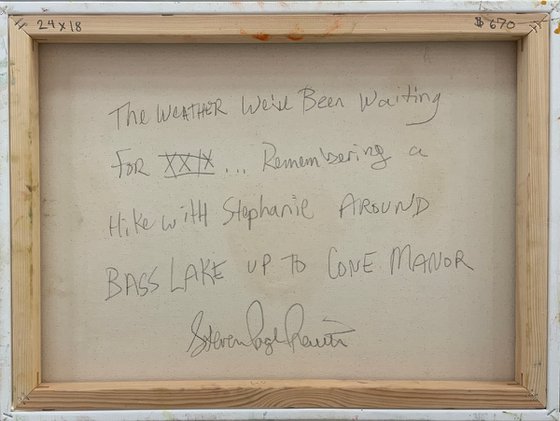 24x18
$ 670
The WEATHER We'Ve Been Waiting
FOR XXIX... Remembering a
Hike with Stephanie AROUND
BASS LAKE UP TO CONE MANOR
Steven